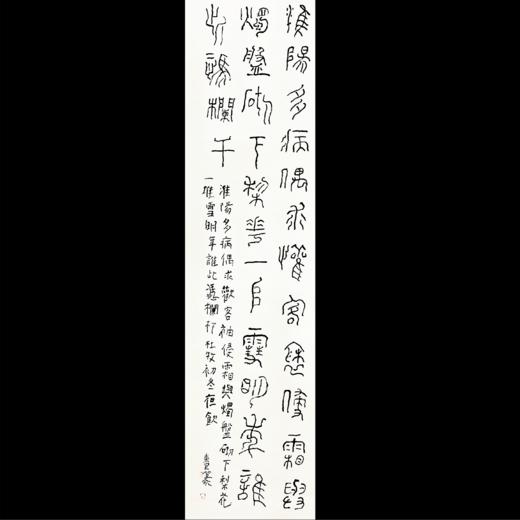 淮陽多病偶求懽客袖侵霜與
燭盤砌下梨花一堆雪明年誰
此憑欄干
淮陽多病偶求歡客袖侵霜與燭盤砌下梨花
一堆雪明年誰此憑欄杆杜牧初冬夜飲